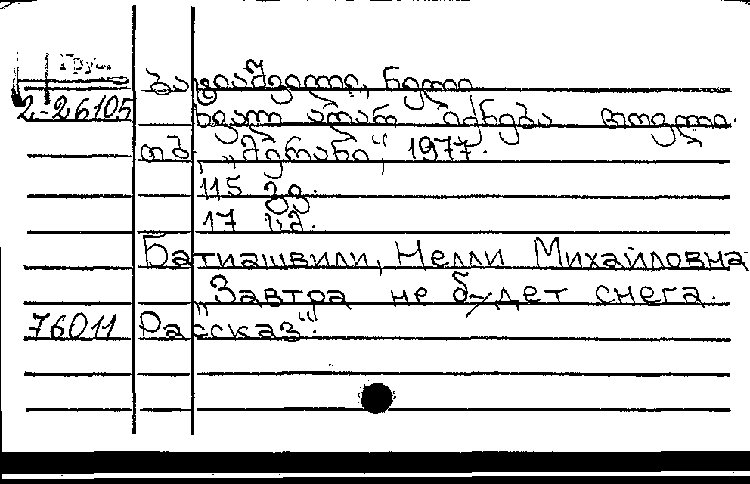 Груз.
ბათიაშვილი, ნელი
2-26105 ხვალ აღარ იქნება თოვლი.
თბ., „მერანი“, 1977.
115 გვ.
17 სმ.
Батиашвили, Нелли Михайловна
„Завтра не будет снега.
76011 Рассказ“.